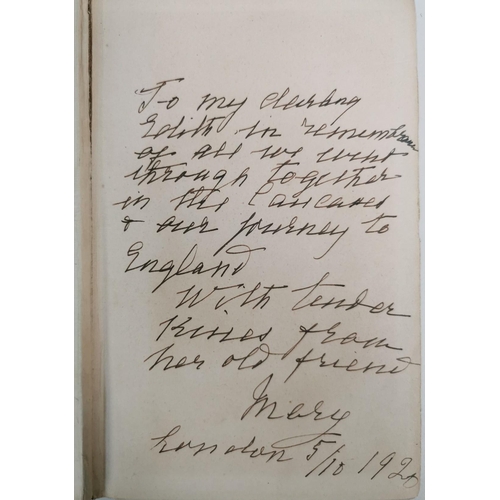 To my darling
Edith in remembrance
of all we went
through together
in the Caucases
& our journey to
England
With tender
Kisses from
her old friend
Mary
London 5/10 192